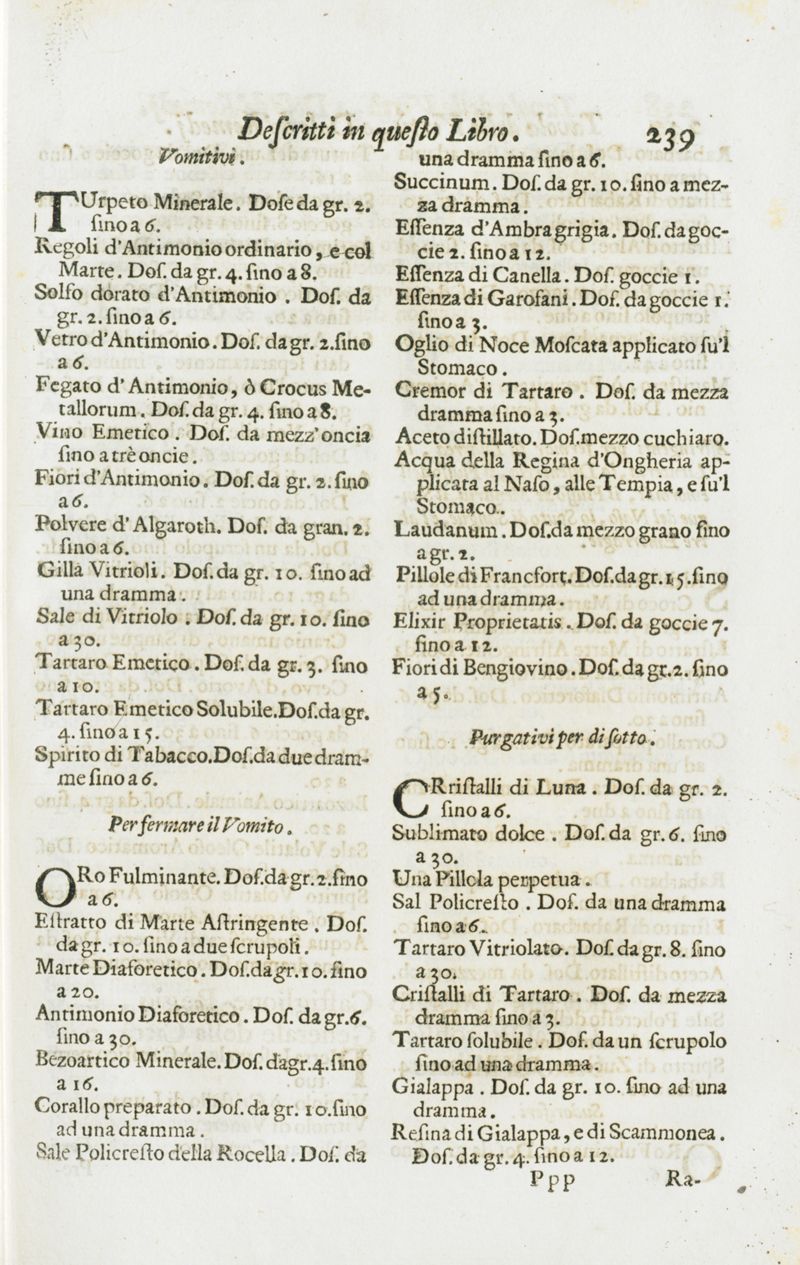 Deſcritti in queſto Libro. 239
Vomitivi.
TUrpeto Minerale. Doſe da gr. 2.
ſino a 6.
Regoli d'Antimonio ordinario, e col
Marte. Doſ. da gr. 4. ſino a 8.
Solfo dorato d'Antimonio . Doſ. da
gr. 2. ſino a 6.
Vetro d'Antimonio. Doſ. da gr. 2. ſino
a 6.
Fegato d' Antimonio, ò Crocus Me-
tallorum. Doſ. da gr. 4. ſino a 8.
Vino Emetico . Doſ. da mezz' oncia
ſino a trè oncie.
Fiori d'Antimonio. Doſ. da gr. 2. ſino
a 6.
Polvere d' Algaroth. Doſ. da gran. 2.
ſino a 6.
Gilla Vitrioli. Doſ. da gr. 10. ſino ad
una dramma.
Sale di Vitriolo . Doſ. da gr. 10. ſino
a 30.
Tartaro Emetico. Doſ. da gr. 3. ſino
a 10.
Tartaro Emetico Solubile. Doſ. da gr.
4. ſino a 15.
Spirito di Tabacco. Doſ. da due dram-
me ſino a 6.
Per fermare il Vomito.
ORo Fulminante. Doſ. da gr. 2. ſino
a 6.
Eſtratto di Marte Aſtringente . Doſ.
da gr. 10. ſino a due ſcrupoli.
Marte Diaforetico. Doſ. da gr. 10. ſino
a 20.
Antimonio Diaforetico. Doſ. da gr. 6.
ſino a 30.
Bezoartico Minerale. Doſ. da gr. 4. ſino
a 16.
Corallo preparato . Doſ. da gr. 10. ſino
ad una dramma.
Sale Policreſto della Rocella . Doſ. da
una dramma ſino a 6.
Succinum. Doſ. da gr. 10. ſino a mez-
za dramma.
Eſſenza d'Ambra grigia. Doſ. da goc-
cie 2. ſino a 12.
Eſſenza di Canella. Doſ. goccie 1.
Eſſenza di Garofani. Doſ. da goccie 1.
ſino a 3.
Oglio di Noce Moſcata applicato ſu'l
Stomaco.
Cremor di Tartaro . Doſ. da mezza
dramma ſino a 3.
Aceto diſtillato. Doſ. mezzo cuchiaro.
Acqua della Regina d'Ongheria ap-
plicata al Naſo, alle Tempia, e ſu'l
Stomaco.
Laudanum. Doſ. da mezzo grano ſino
a gr. 2.
Pillole di Francfort. Doſ. da gr. 15. ſino
ad una dramma.
Elixir Proprietatis. Doſ. da goccie 7.
ſino a 12.
Fiori di Bengiovino. Doſ. da gr. 2. ſino
a 5.
Purgativi per di ſotto.
CRriſtalli di Luna . Doſ. da gr. 2.
ſino a 6.
Sublimato dolce . Doſ. da gr. 6. ſino
a 30.
Una Pillola perpetua.
Sal Policreſto . Doſ. da una dramma
ſino a 6.
Tartaro Vitriolato. Doſ. da gr. 8. ſino
a 30.
Criſtalli di Tartaro . Doſ. da mezza
dramma ſino a 3.
Tartaro ſolubile . Doſ. da un ſcrupolo
ſino ad una dramma.
Gialappa . Doſ. da gr. 10. ſino ad una
dramma.
Reſina di Gialappa, e di Scammonea.
Doſ. da gr. 4. ſino a 12.
Ppp Ra-